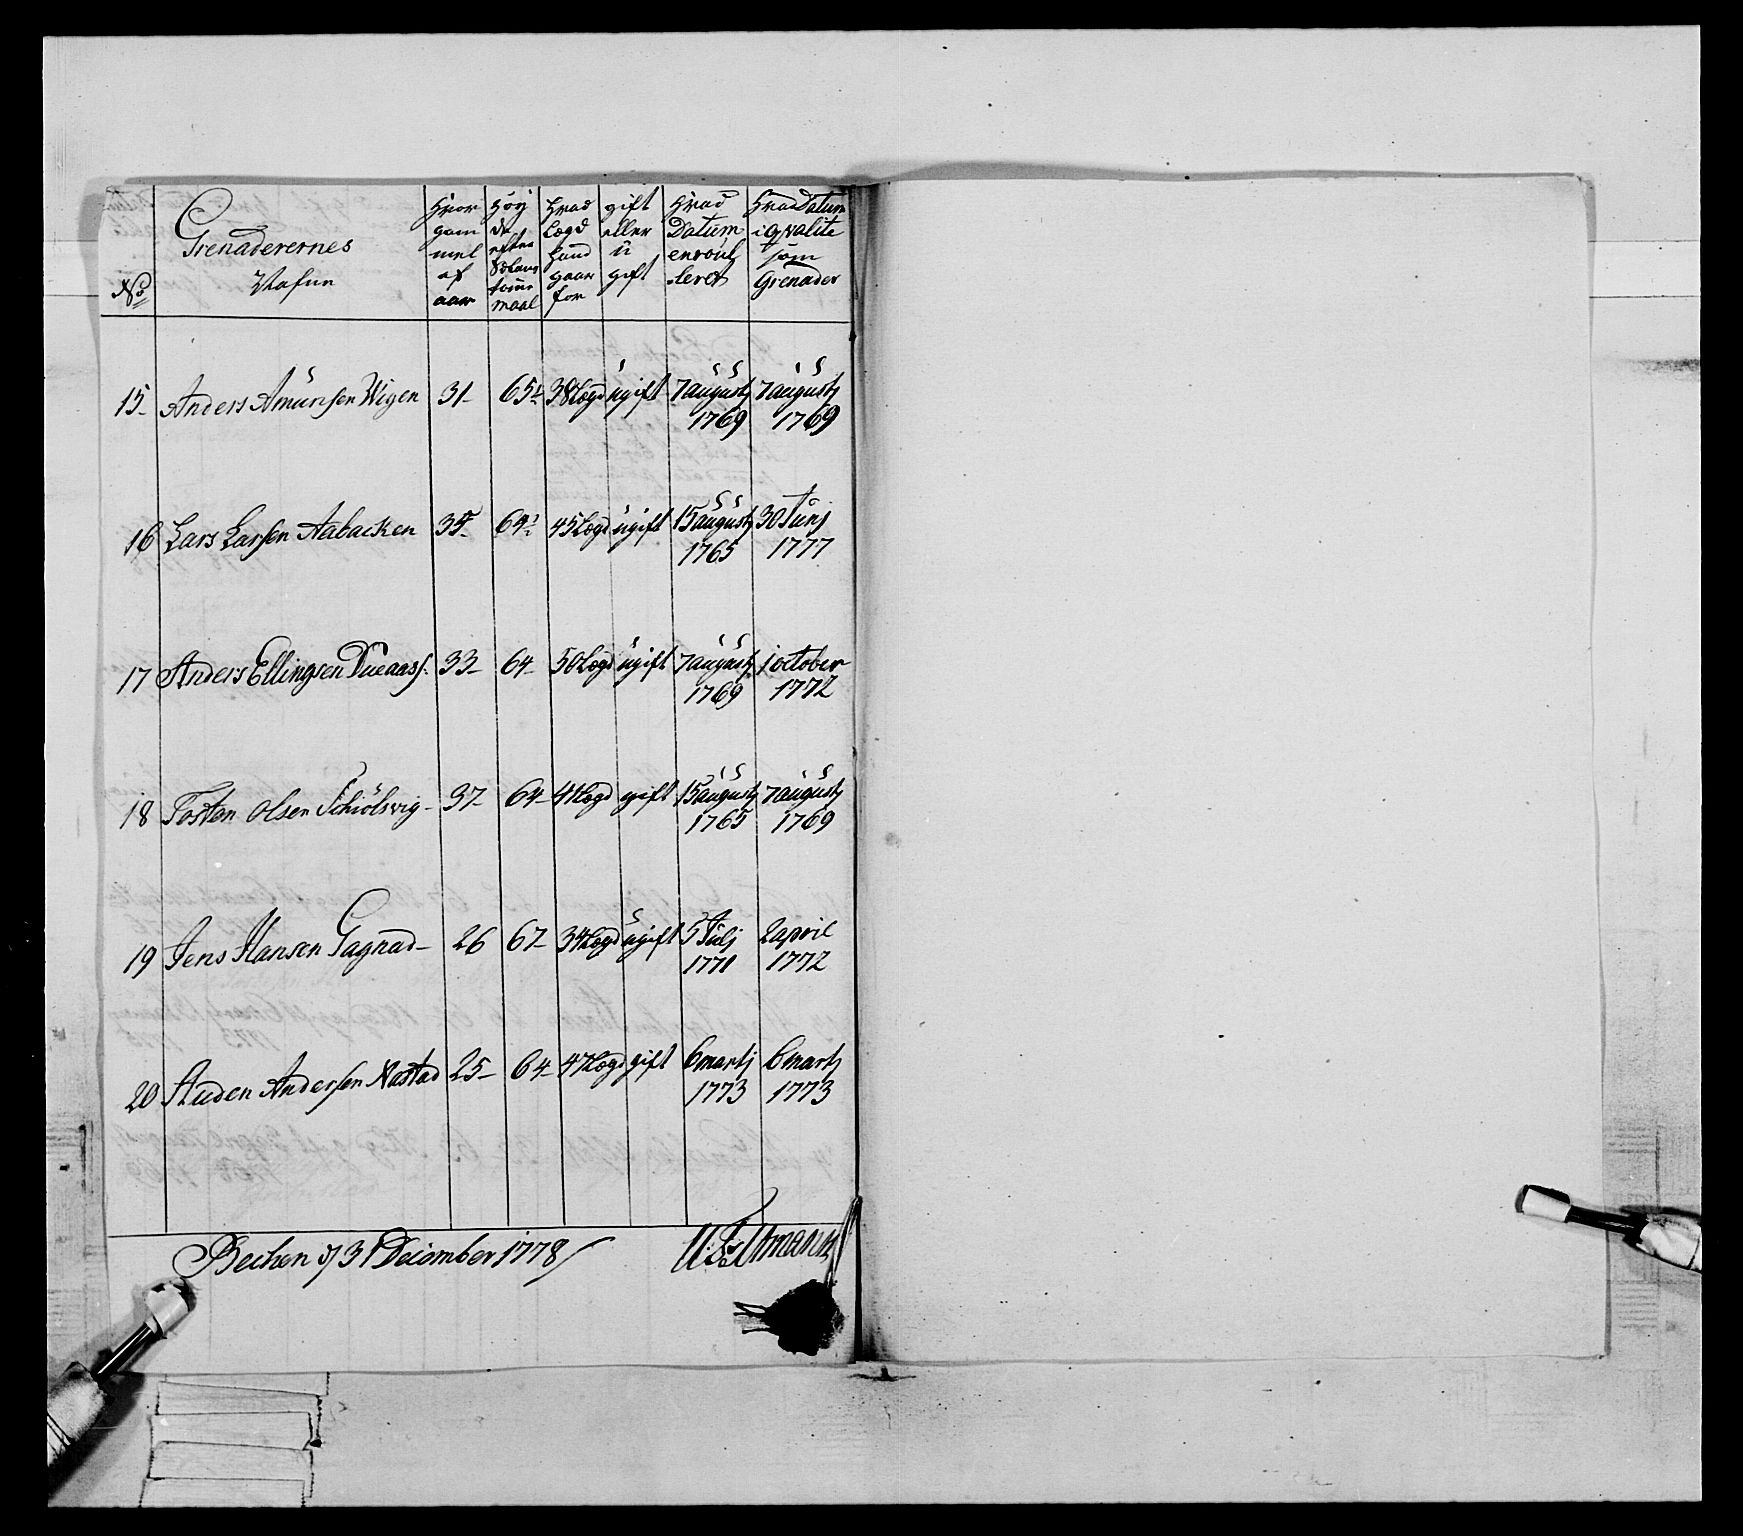 No
Grenaderernes Nafne
Hvor gammel af aar
Høyde efter Solands tomme maal
Hvad Lægd hand gaar for
gift eller ugift
Hvad Datum enroulleret
Hvad Datum i qvalite som Grenader
15 Anders Amundsen Wigen 31 65½ 38 Lægd ugift 7 augustj 1769 7 augustj 1769
16 Lars Larsen Aabacken 35 64½ 45 Lægd ugift 15 augustj 1765 30 Junj 1777
17 Anders Ellingsen 33 64 50 Lægd ugift 7 augustj 1769 1 october 1772
18 Tosten Olsen Schiölsvig 37 64 41 Lægd gift 15 augustj 1765 7 augustj 1769
19 Jens Hansen Gagnad 26 67 34 Lægd ugift 5 Julj 1771 2 april 1772
20 Auden Andersen Nastad 25 64 47 Lægd gift 6 martj 1773 6 martj 1773
Bechen d 31 December 1778